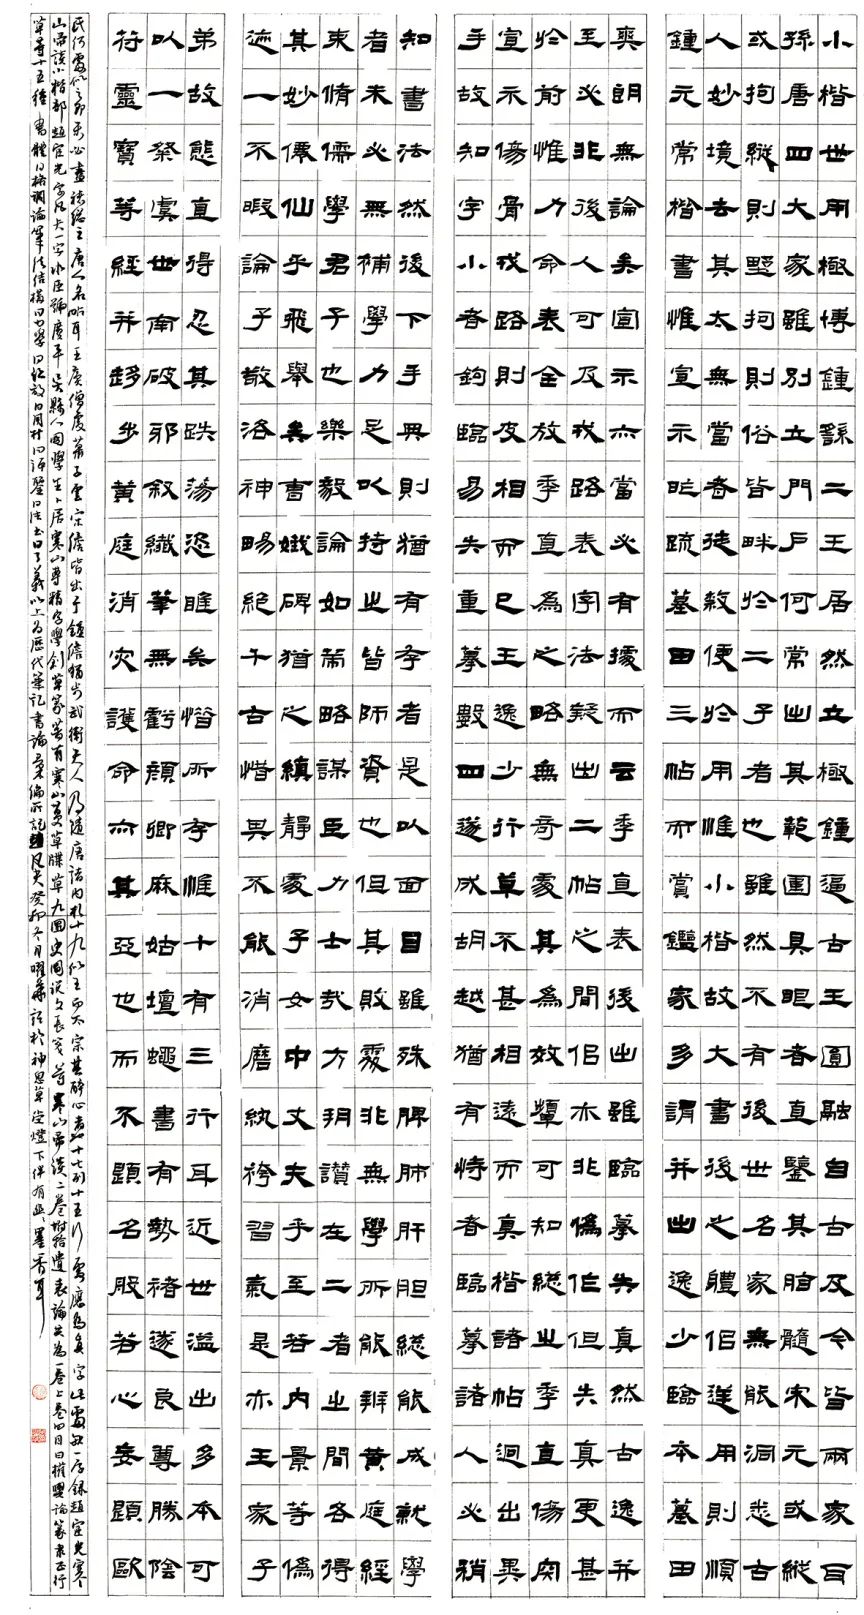 小楷世用極博鍾繇二王居然立極鍾逼古王圓融自古及今皆兩家耳
孫唐四大家雖別立門戶何常出其範圍具眼者直鑒其脂髓宋元或縱
或拘縱則野拘則俗皆畔於二子者也雖然不有後世名家無能洞悉古
人妙境去其太無當者徒敘便於用惟小楷故大書後之體侶送用則順
鍾元常楷書惟宣示昨疏墓田三帖而賞鑑家多謂并出逸少臨本墓田
爽朗無論矣宣示亦當必有據而云季直表後出雖臨摹失真然古逸并
至必非後人可及戎路表字法疑出二帖之間侶亦非偽作但失真更甚
於前惟力命表全放季直為之略無奇處其為效顰可知總之季直傷突
宣示傷骨戎路則皮相而已王逸少行草不甚相遠而真楷諸帖迥出異
手故知字小者鉤臨易失重摹數四遂成胡越猶有恃者臨摹諸人必稍
知書法然後下手與則猶有存者是以面目雖殊脾肺肝胆總能成就學
者未必無補學力足以持之皆師資也但其敗處非無學所能辨黃庭經
束脩儒學君子也樂毅論如莆略謀臣力士哉方朔讚在二者之間各得
其妙僊仙乎飛舉矣書娥碑猶之縝靜處子女中丈夫乎至若內景等偽
迹一不暇論子敬洛神賜絕千古惜異不能消磨紈袴習氣是亦王家子
弟故態直得忍其跌蕩恣睢矣惜所存惟十有三行耳近世溢出多本可
以一祭虞世南破邪敘纖筆無虧顏卿麻姑壇蠅書有勢褚遂良尊勝陰
符靈寶等經并趍步黃庭消災護命亦其亞也而不題名股若心委題歐
民何處似之即不必盡神總之唐人名帖耳王廙僧虔蕭子雲宋儋皆出于鍾儋稍步武衛夫人乃隨唐諸內於十九似王正大宗其醉心者也十七列十五行處應為魚字此處缺一序錄趙宦光寒
山帚談小楷部趙宦光字凡夫一字水臣號廣平吳縣人國學生卜居寒山專精字學創草篆著有寒山蔓草牒草九圜史圖說文長箋等寒山帚談二卷附拾遺表論共為一卷上卷四目曰權輿論篆隶正行
草等十五種書體曰格調論筆法結構曰力學曰臨仿曰用材曰評鑒曰法書曰了義以上為歷代筆記書論彙編所記趙凡夫癸卯冬月曜華語於神思草堂燈下伴有幽幽墨香耳